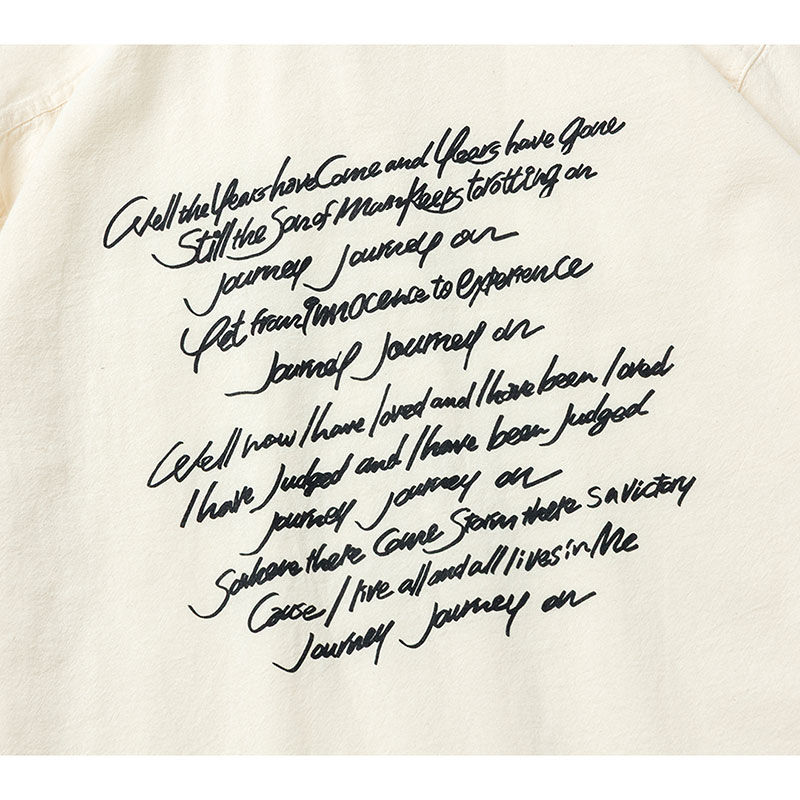 Well the Years have Come and Years have gone
Still the Son of Man Keeps trotting on
Journey Journey on
Yet from innocence to experience
Journey Journey on
Well now I have loved and I have been loved
I have Judged and I have been Judged
Journey Journey on
So when there Come Storm there s a victory
Cause I live all and all lives in Me
Journey Journey on